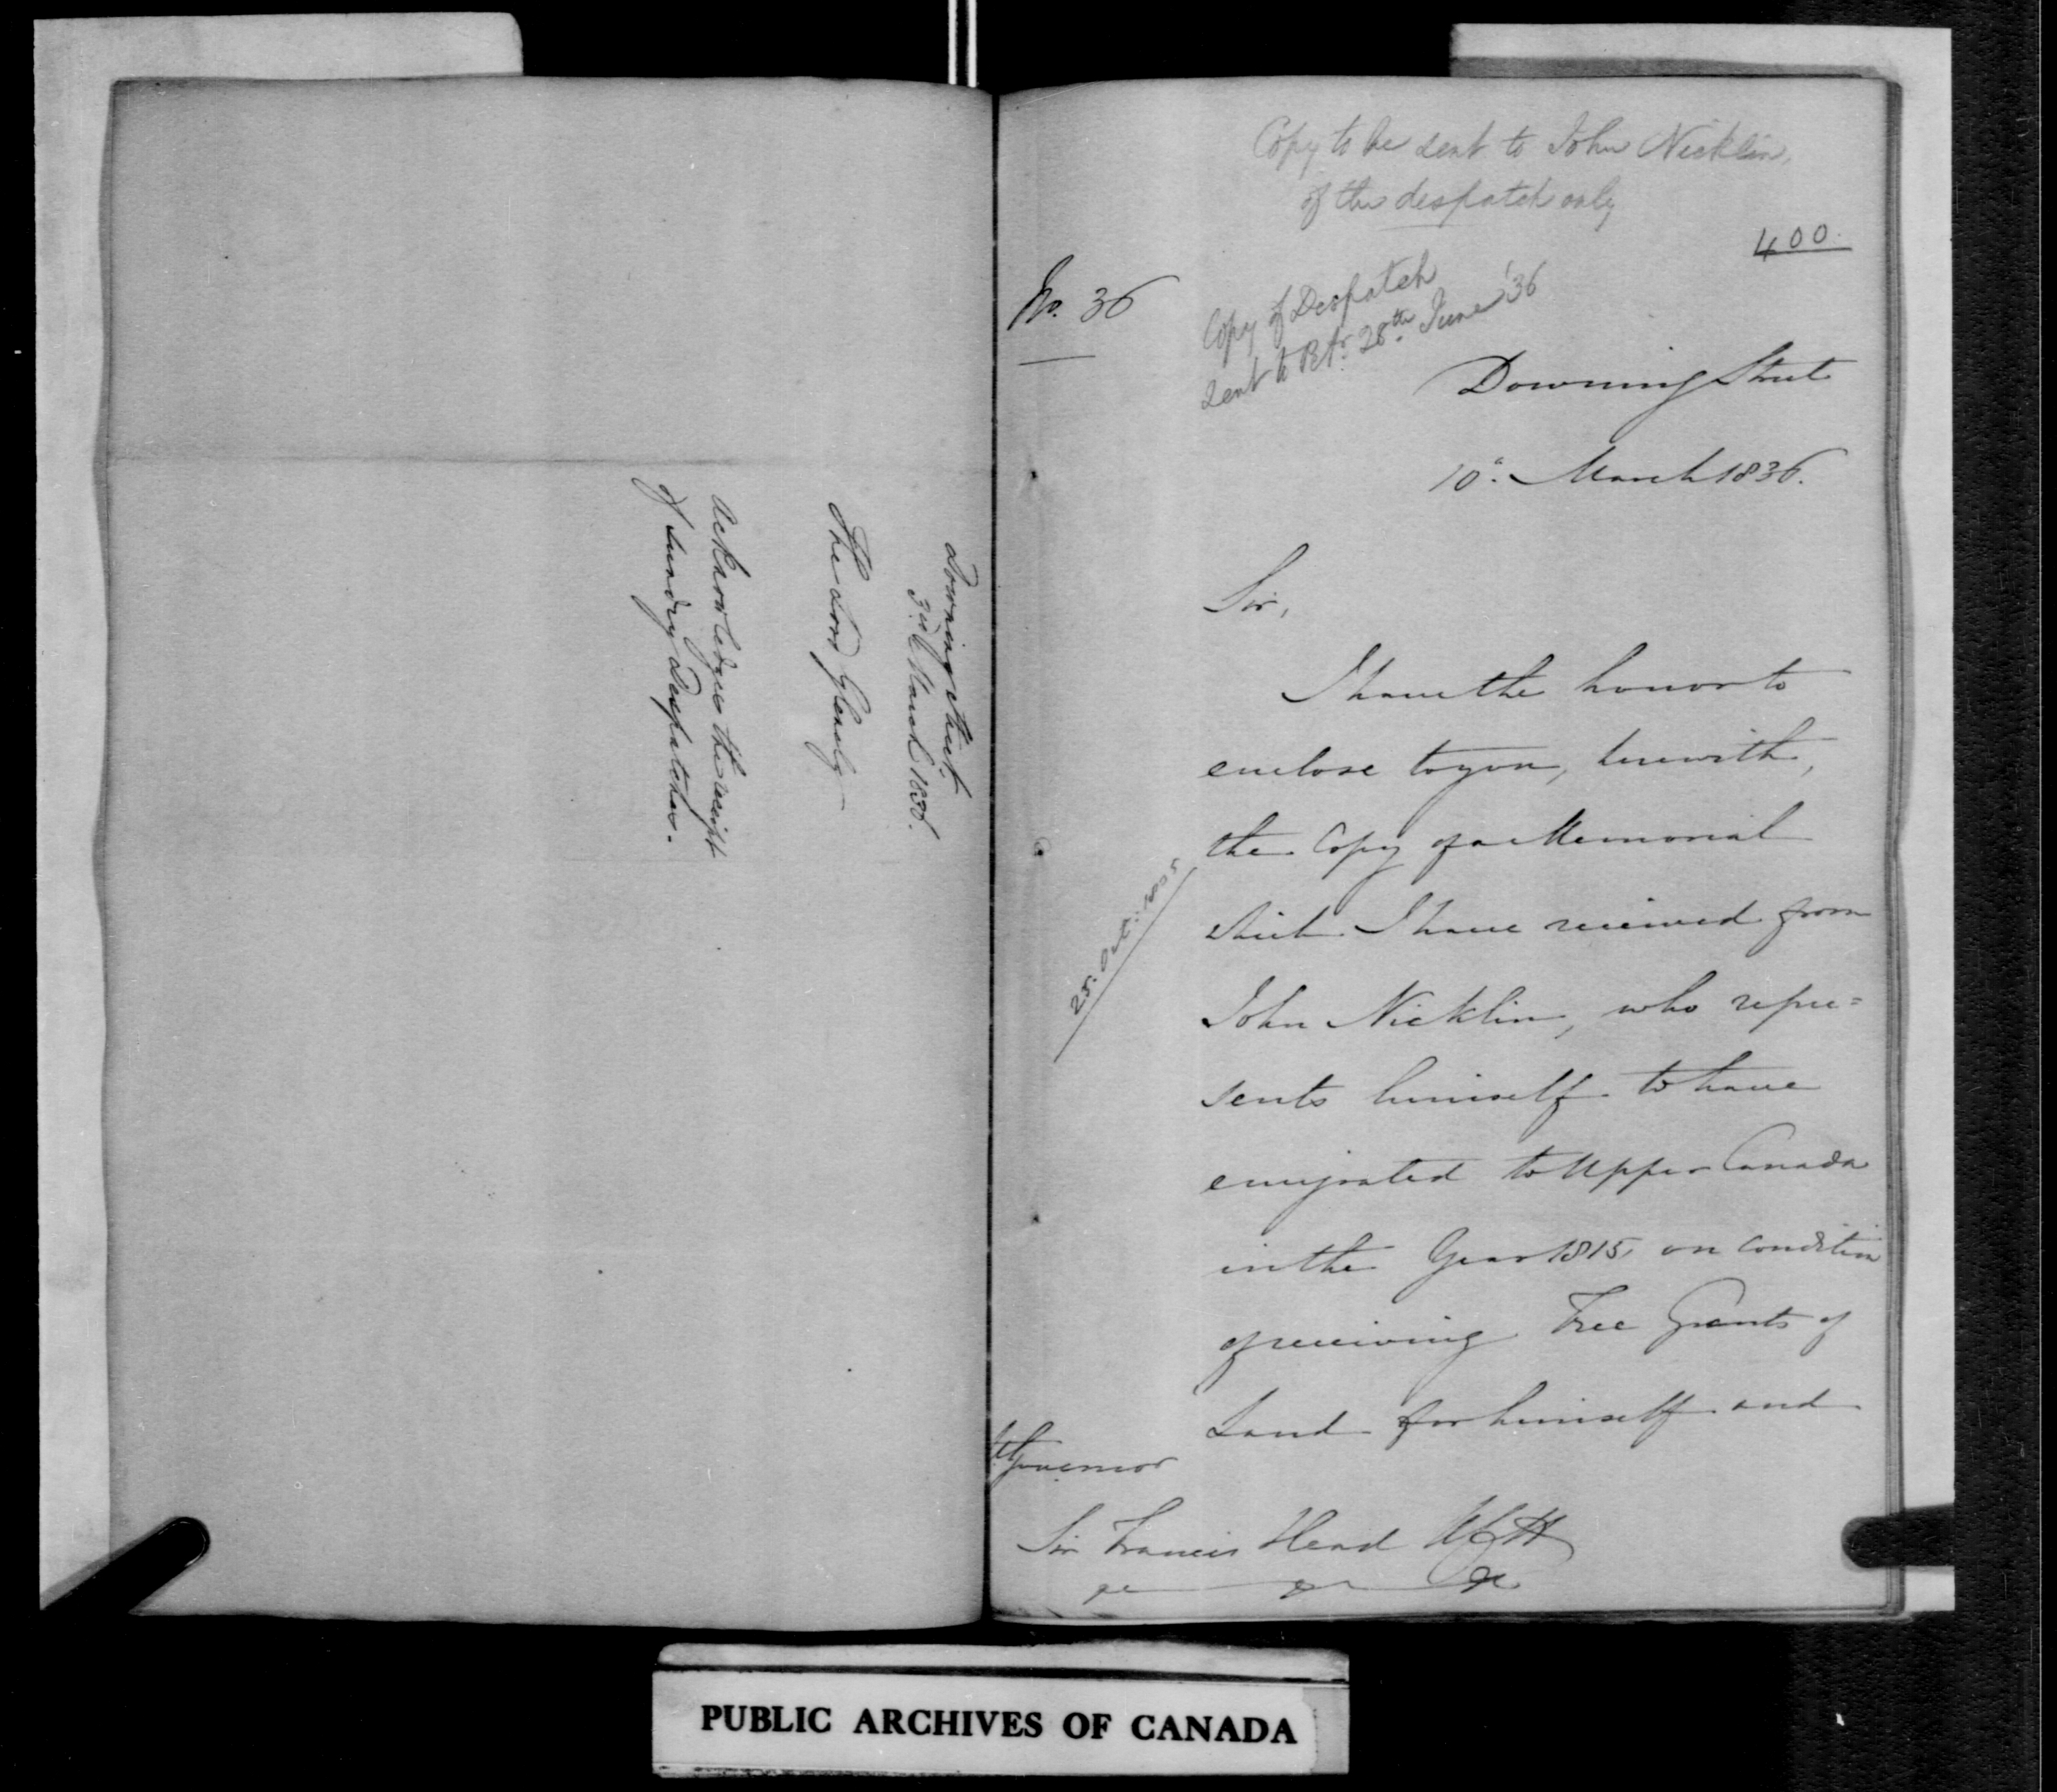 Downing Street.
3rd March 1836.
The Lord Glenelg
Acknowledges the receipt
of sundry Despatches.
Copy to be sent to John Nicklin,
of the despatch only
400.
No. 36
Copy of Despatch
sent to Petr. 28th June '36
Downing Street
10th March 1836.
Sir,
I have the honor to
enclose to you, herewith,
the Copy of a Memorial
which I have received from
25. Oct. 1835
John Nicklin, who repre=
sents himself to have
emigrated to Upper Canada
in the Year 1815, on condition
of receiving Free Grants of
Land for himself and
Lt. Governor
Sir Francis Head KCH
PUBLIC ARCHIVES OF CANADA